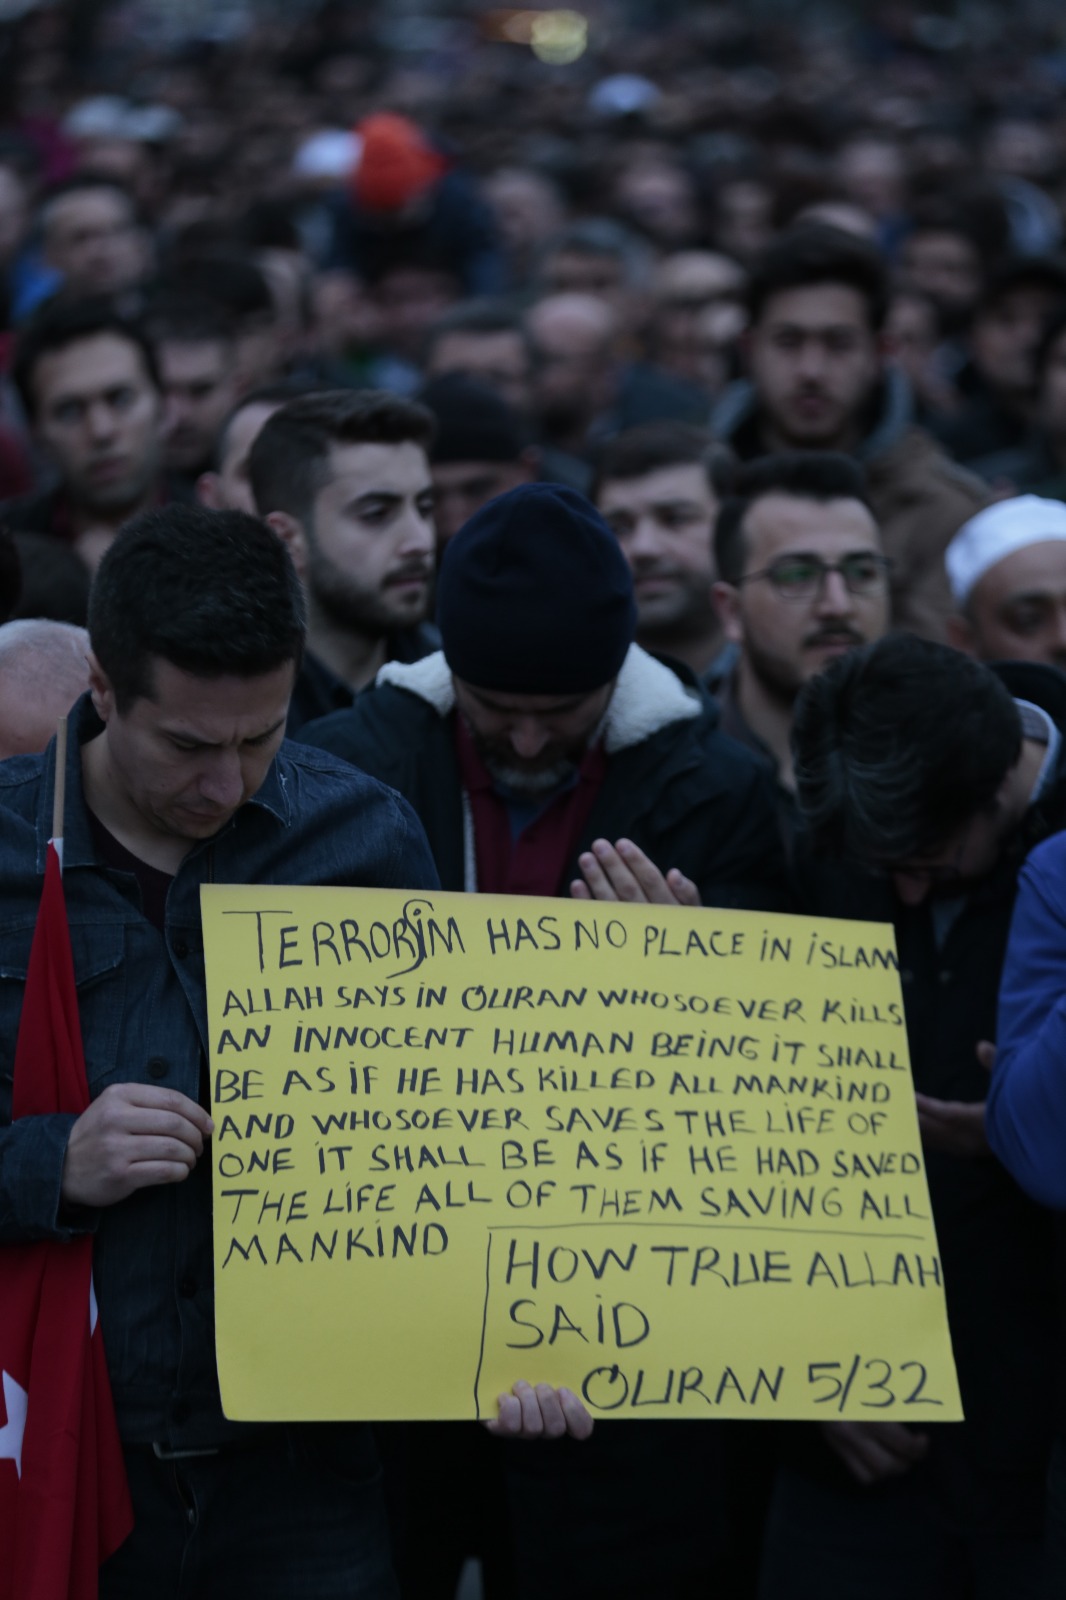 TERRORSİM HAS NO PLACE İN İSLAM
ALLAH SAYS İN QURAN WHOSOEVER KİLLS
AN İNNOCENT HUMAN BEİNG İT SHALL
BE AS İF HE HAS KİLLED ALL MANKİND
AND WHOSOEVER SAVES THE LİFE OF
ONE İT SHALL BE AS İF HE HAD SAVED
THE LİFE ALL OF THEM SAVİNG ALL
MANKİND
HOW TRUE ALLAH
SAİD
QURAN 5/32